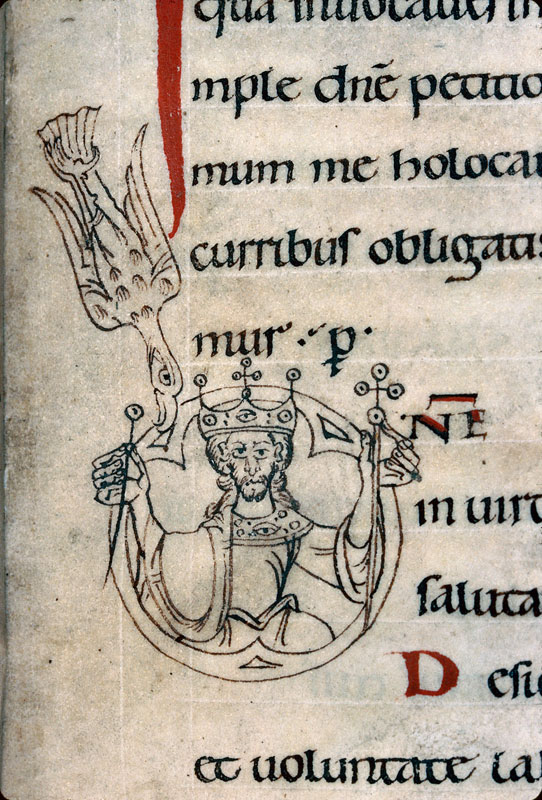 qua inuocaueri in
mple dnē petitio
mum me holocau
curribus obligati
mur p
NE
in uirt
saluta
D esid
et uoluntate lab